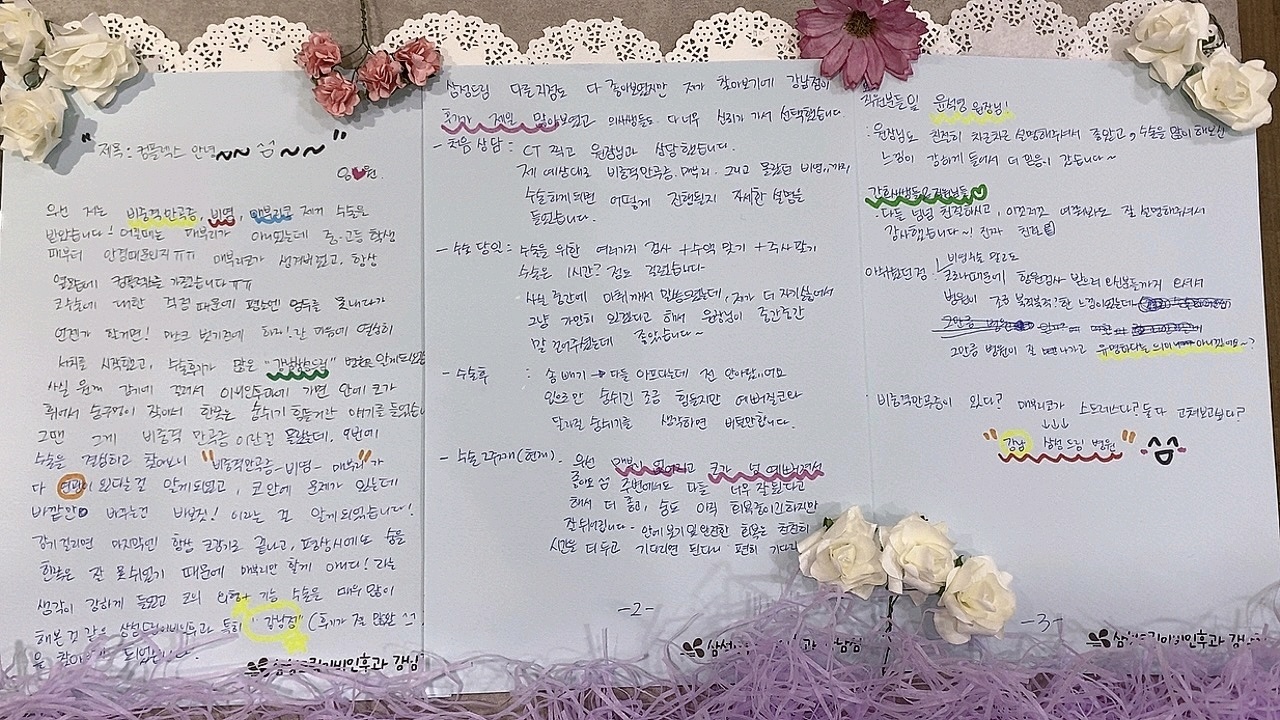 "제목: 컴플렉스 안녕~~ 섬~~"
우선 저는 비중격만곡증, 비염, 매부리코 제거 수술을
받았습니다! 어릴때는 매부리가 아니였는데 중·고등학생
때부터 안경때문인지ㅠㅠ 매부리코가 생겨버렸고, 항상
옆모습에 컴플렉스를 가졌습니다ㅠㅠ
코수술에 대한 걱정 때문에 평소엔 엄두를 못내다가
언젠가 할거면! 마스크 벗기전에 하자! 란 마음에 열심히
서치를 시작했고, 수술후기가 많은 "삼성드림" 병원을 알게되었
사실 원래 감기에 걸려서 이비인후과에 가면 안에 코가
휘어서 숨구멍이 작아서 한쪽은 숨쉬기 힘들거란 얘기를 들었었
그땐 그게 비중격 만곡증이란걸 몰랐는데, 이번에
수술을 결심하고 찾아보니 "비중격만곡증-비염- 매부리"가
다 연관이 있다는걸 알게되었고, 코안에 문제가 있는데
바깥만 바꾸는건 바보짓! 이라는 걸 알게되었습니다!
감기걸리면 마지막엔 항상 코감기로 끝나고, 평상시에도 숨을
한쪽은 잘 못쉬었기 때문에 매부리만 할게 아니다! 라는
생각이 강하게 들었고 코의 외형+기능 수술을 매우 많이
해본 것 같은 삼성드림이비인후과 특히 "강남점" (후기가 젤 많았
을 찾아 되었습니다.
삼성드림이비인후과 강남
삼성드림 다른지점도 다 좋아보였지만 제가 찾아보기에 강남점이
후기가 제일 많아보였고 의사쌤들도 다 너무 신뢰가 가서 선택했습니다.
- 처음 상담 : CT 찍고 원장님과 상담했습니다.
제 예상대로 비중격만곡증, 매부리, 그리고 몰랐던 비염까지
수술하게되면 어떻게 진행될지 자세한 설명을
들었습니다.
- 수술 당일 : 수술을 위한 여러가지 검사 + 수액 맞기 + 주사맞기
수술은 1시간? 정도 걸렸습니다
사실 중간에 마취 깨서 있었는데, 제가 더
그냥 가만히 있겠다고 해서 원장님이 중간중간
말 걸어주셨는데 좋았습니다~
- 수술후 : 솜 빼기 → 다들 아프다는데 전 안아팠어요
입으로만 숨쉬긴 조금 힘들지만 예뻐질코와
달라질 숨쉬기를 생각하면 버틸만합니다.
- 수술 2주차(현재) : 우선 코가 넘 예뻐져서
좋아요 넘 주변에서도 다들 너무 잘됐다고
해서 더 좋고, 숨도 아직 회복중이긴하지만
잘 쉬어집니다~ 안에 붓기 및 완전한 회복은 천천히
시간을 더 두고 기다리면 된다니 편히 기다리
-2-
직원분들 및 윤석영 원장님!
: 원장님도 친절히 차근차근 설명해주셔서 좋았고, 수술을 많이 해보신
느낌이 강하게 들어서 더 믿음이 갔습니다~
간호사쌤들&직원분들♡
: 다들 넘넘 친절하시고, 이것저것 여쭤봐도 잘 설명해주셔서
감사했습니다~! 진짜 친절
아쉬웠던점
비염수술 말고도
코로나때문에 항원검사 받으러 오신분들까지 오셔서
병원이 조금 북적북적?한 느낌이었는데
그만큼 병원이 잘 나가고 유명하다는 의미 아니겠어요~?
: 비중격만곡증이 있다? 매부리코가 스트레스다? 둘다 고쳐보고싶다?
↓↓↓
"강남 삼성드림 병원"
-3-